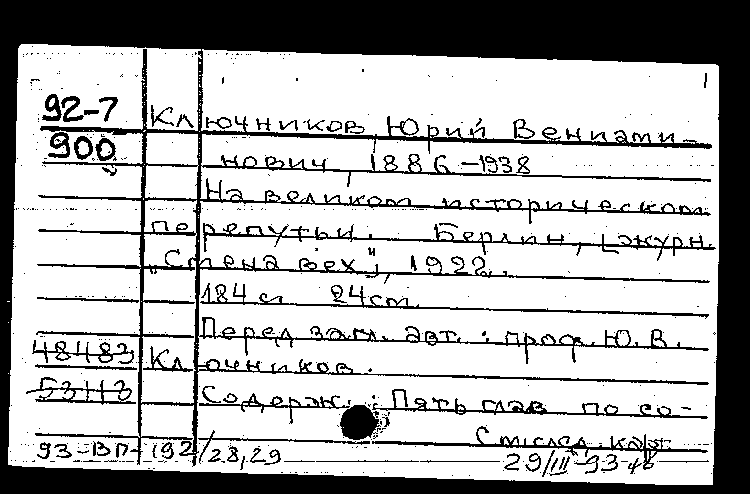 92-7
900
Ключников, Юрий Вениами-
нович, 1886-1938
На великом историческом
перепутьи. Берлин, [журн.
"Смена вех"], 1922.
184 с. 24 см.
Перед загл. авт.: проф. Ю. В.
48483 Ключников.
53113 Содерж.: Пять глав по со-
См. след. карт.
93-ВП-192/28,29
29/III-93